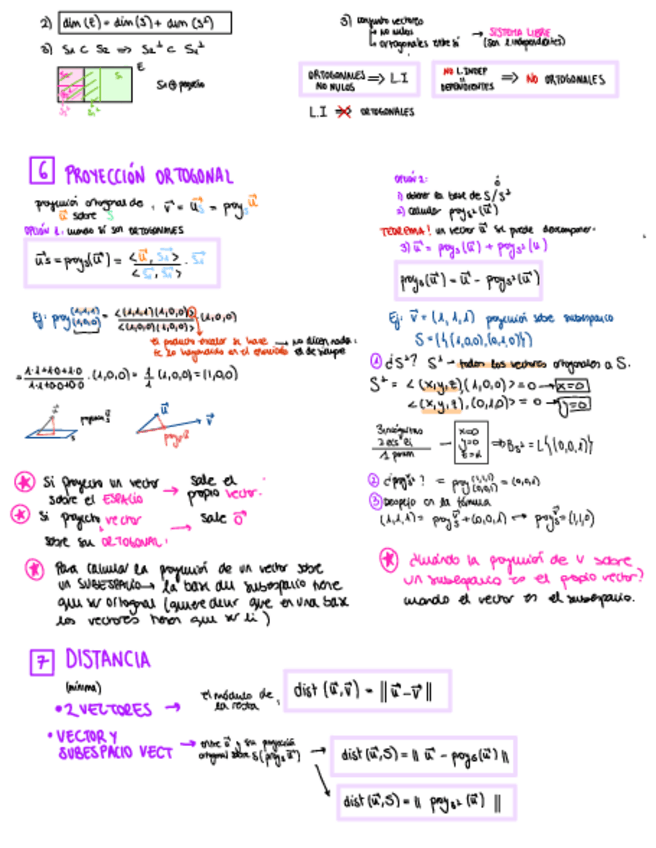 2) dim (E) = dim(S) + dim (S⊥)
3) S1 ⊂ S2 => S2⊥ ⊂ S1⊥
E
3) conjunto vectores
no nulos
ortogonales entre sí
→ SISTEMA LIBRE
(son l.independientes)
ORTOGONALES NO NULOS => L.I
NO L.INDEP
DEPENDIENTES => NO ORTOGONALES
L.I => ORTOGONALES
6 PROYECCIÓN ORTOGONAL
proyección ortogonal de u sobre S : v = us = proy_S u
OPCIÓN 1: cuando sí son ORTOGONALES
us = proy_S(u) = <u, S1> / <S1, S1> · S1
Ej: proy (1,1,1) (1,0,0) = <(1,1,1)(1,0,0)> / <(1,0,0)(1,0,0)> · (1,0,0)
el producto escalar se hace → no dicen nada:
te lo dan en el enunciado el de siempre
= 1·1+1·0+1·0 / 1·1+0·0+0·0 · (1,0,0) = 1/1 (1,0,0) = (1,0,0)
Si proyecto un vector sobre el ESPACIO → sale el propio vector.
Si proyecto vector sobre su ORTOGONAL: → sale 0
Para calcular la proyección de un vector sobre
un SUBESPACIO → la base del subespacio tiene
que ser ortogonal (quiere decir que en una base
los vectores tienen que ser li)
OPCIÓN 2:
1) obtener la base de S/S⊥
2) calcular proy_S⊥(u)
TEOREMA! un vector u se puede descomponer.
3) u = proy_S(u) + proy_S⊥(u)
proy_S(u) = u - proy_S⊥(u)
Ej: v = (1,1,1) proyección sobre subespacio
S = L{(1,0,0),(0,1,0)}
1 ¿S⊥? S⊥ → todos los vectores ortogonales a S.
S⊥ = <(x,y,z),(1,0,0)> = 0 → x=0
<(x,y,z),(0,1,0)> = 0 → y=0
3 incógnitas
2 ecs
1 param
→ x=0 y=0 z=α => B_S⊥ = L{(0,0,1)}
2 ¿proy_S⊥? = proy (1,1,1) (0,0,1) = (0,0,1)
3 Despejo en la fórmula
(1,1,1) = proy_S v + (0,0,1) → proy_S v = (1,1,0)
¿Cuándo la proyección de v sobre
un subespacio es el propio vector?
cuando el vector es el subespacio.
7 DISTANCIA
(mínima)
• 2 VECTORES → el módulo de la resta : dist (u,v) = ‖u-v‖
• VECTOR Y SUBESPACIO VECT → entre u y su proyección ortogonal sobre S (proy_S u)
→ dist (u,S) = ‖ u - proy_S(u) ‖
→ dist (u,S) = ‖ proy_S⊥ (u) ‖